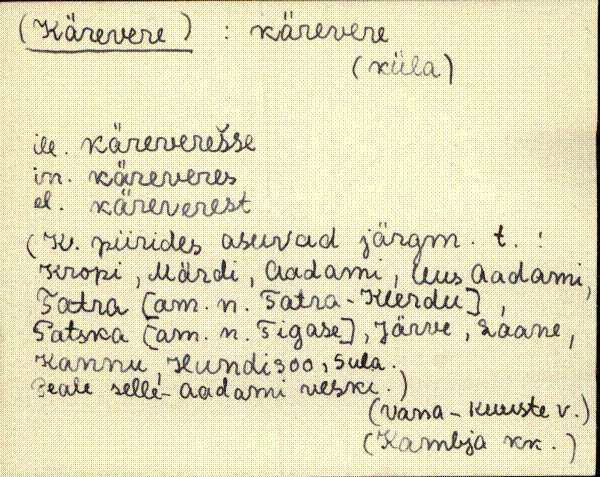 (Kärevere) : kärevere
(küla)
ill. käreverešše
in. käreveres
el. käreverest
(K. piirides asuvad järgm. t. :
Kropi, Märdi, Aadami, Uus Aadami,
Tatra [am. n. Tatra-Kurdu],
Patska [am. n. Tigase], Järve, Laane,
Kannu, Hundisoo, Sula.
Peale selle- aadami veski.)
(Vana-Kuuste v.)
(Kambja kk.)